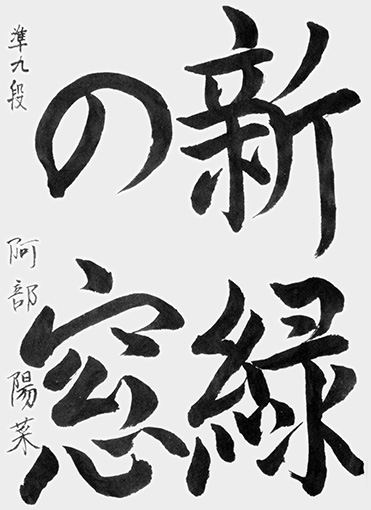 新緑
の窓
準九段 阿部陽菜